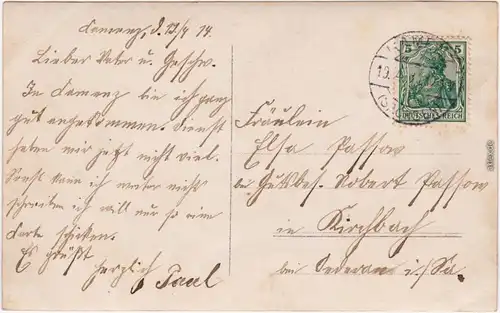 Kamenz, d. 19/4 14.
Lieber Vater u. Geschw.
In Kamenz bin ich ganz
gut angekommen. Dienst
haben wir jetzt nicht viel.
Sonst kann ich weiter nichts
schreiben ich will nur so eine
Karte schicken.
Es grüßt
herzlich Paul
Fräulein
Elsa Passow
bei Gutsbes. Robert Passow
in Kirchbach
bei Oederan i/Sa.
5 5
DEUTSCHES REICH